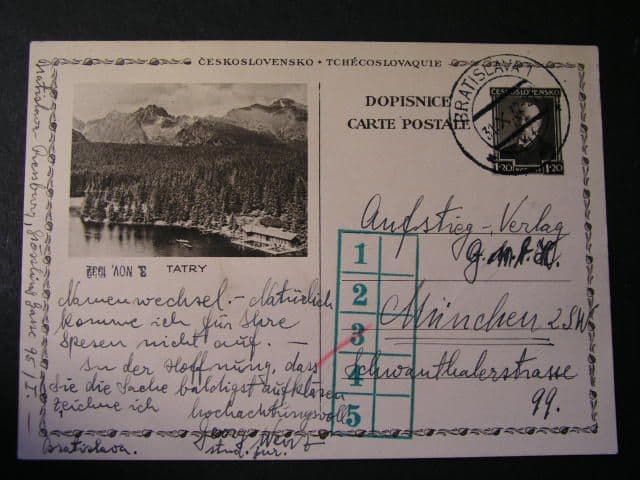 ČESKOSLOVENSKO • TCHÉCOSLOVAQUIE
DOPISNICE
CARTE POSTALE
BRATISLAVA 1
ČESKOSLOVENSKO
1·20 1·20
TATRY
3. NOV. 1932
Aufstieg-Verlag
G.m.b.H.
München 2 SW
Schwanthalerstrasse
99.
1
2
3
4
5
Namenwechsel. – Natürlich
komme ich für Ihre
Spesen nicht auf. –
In der Hoffnung, dass
Sie die Sache baldigst aufklären
zeichne ich
hochachtungsvoll
Georg
stud. jur.
Bratislava.
Bratislava Pressburg,